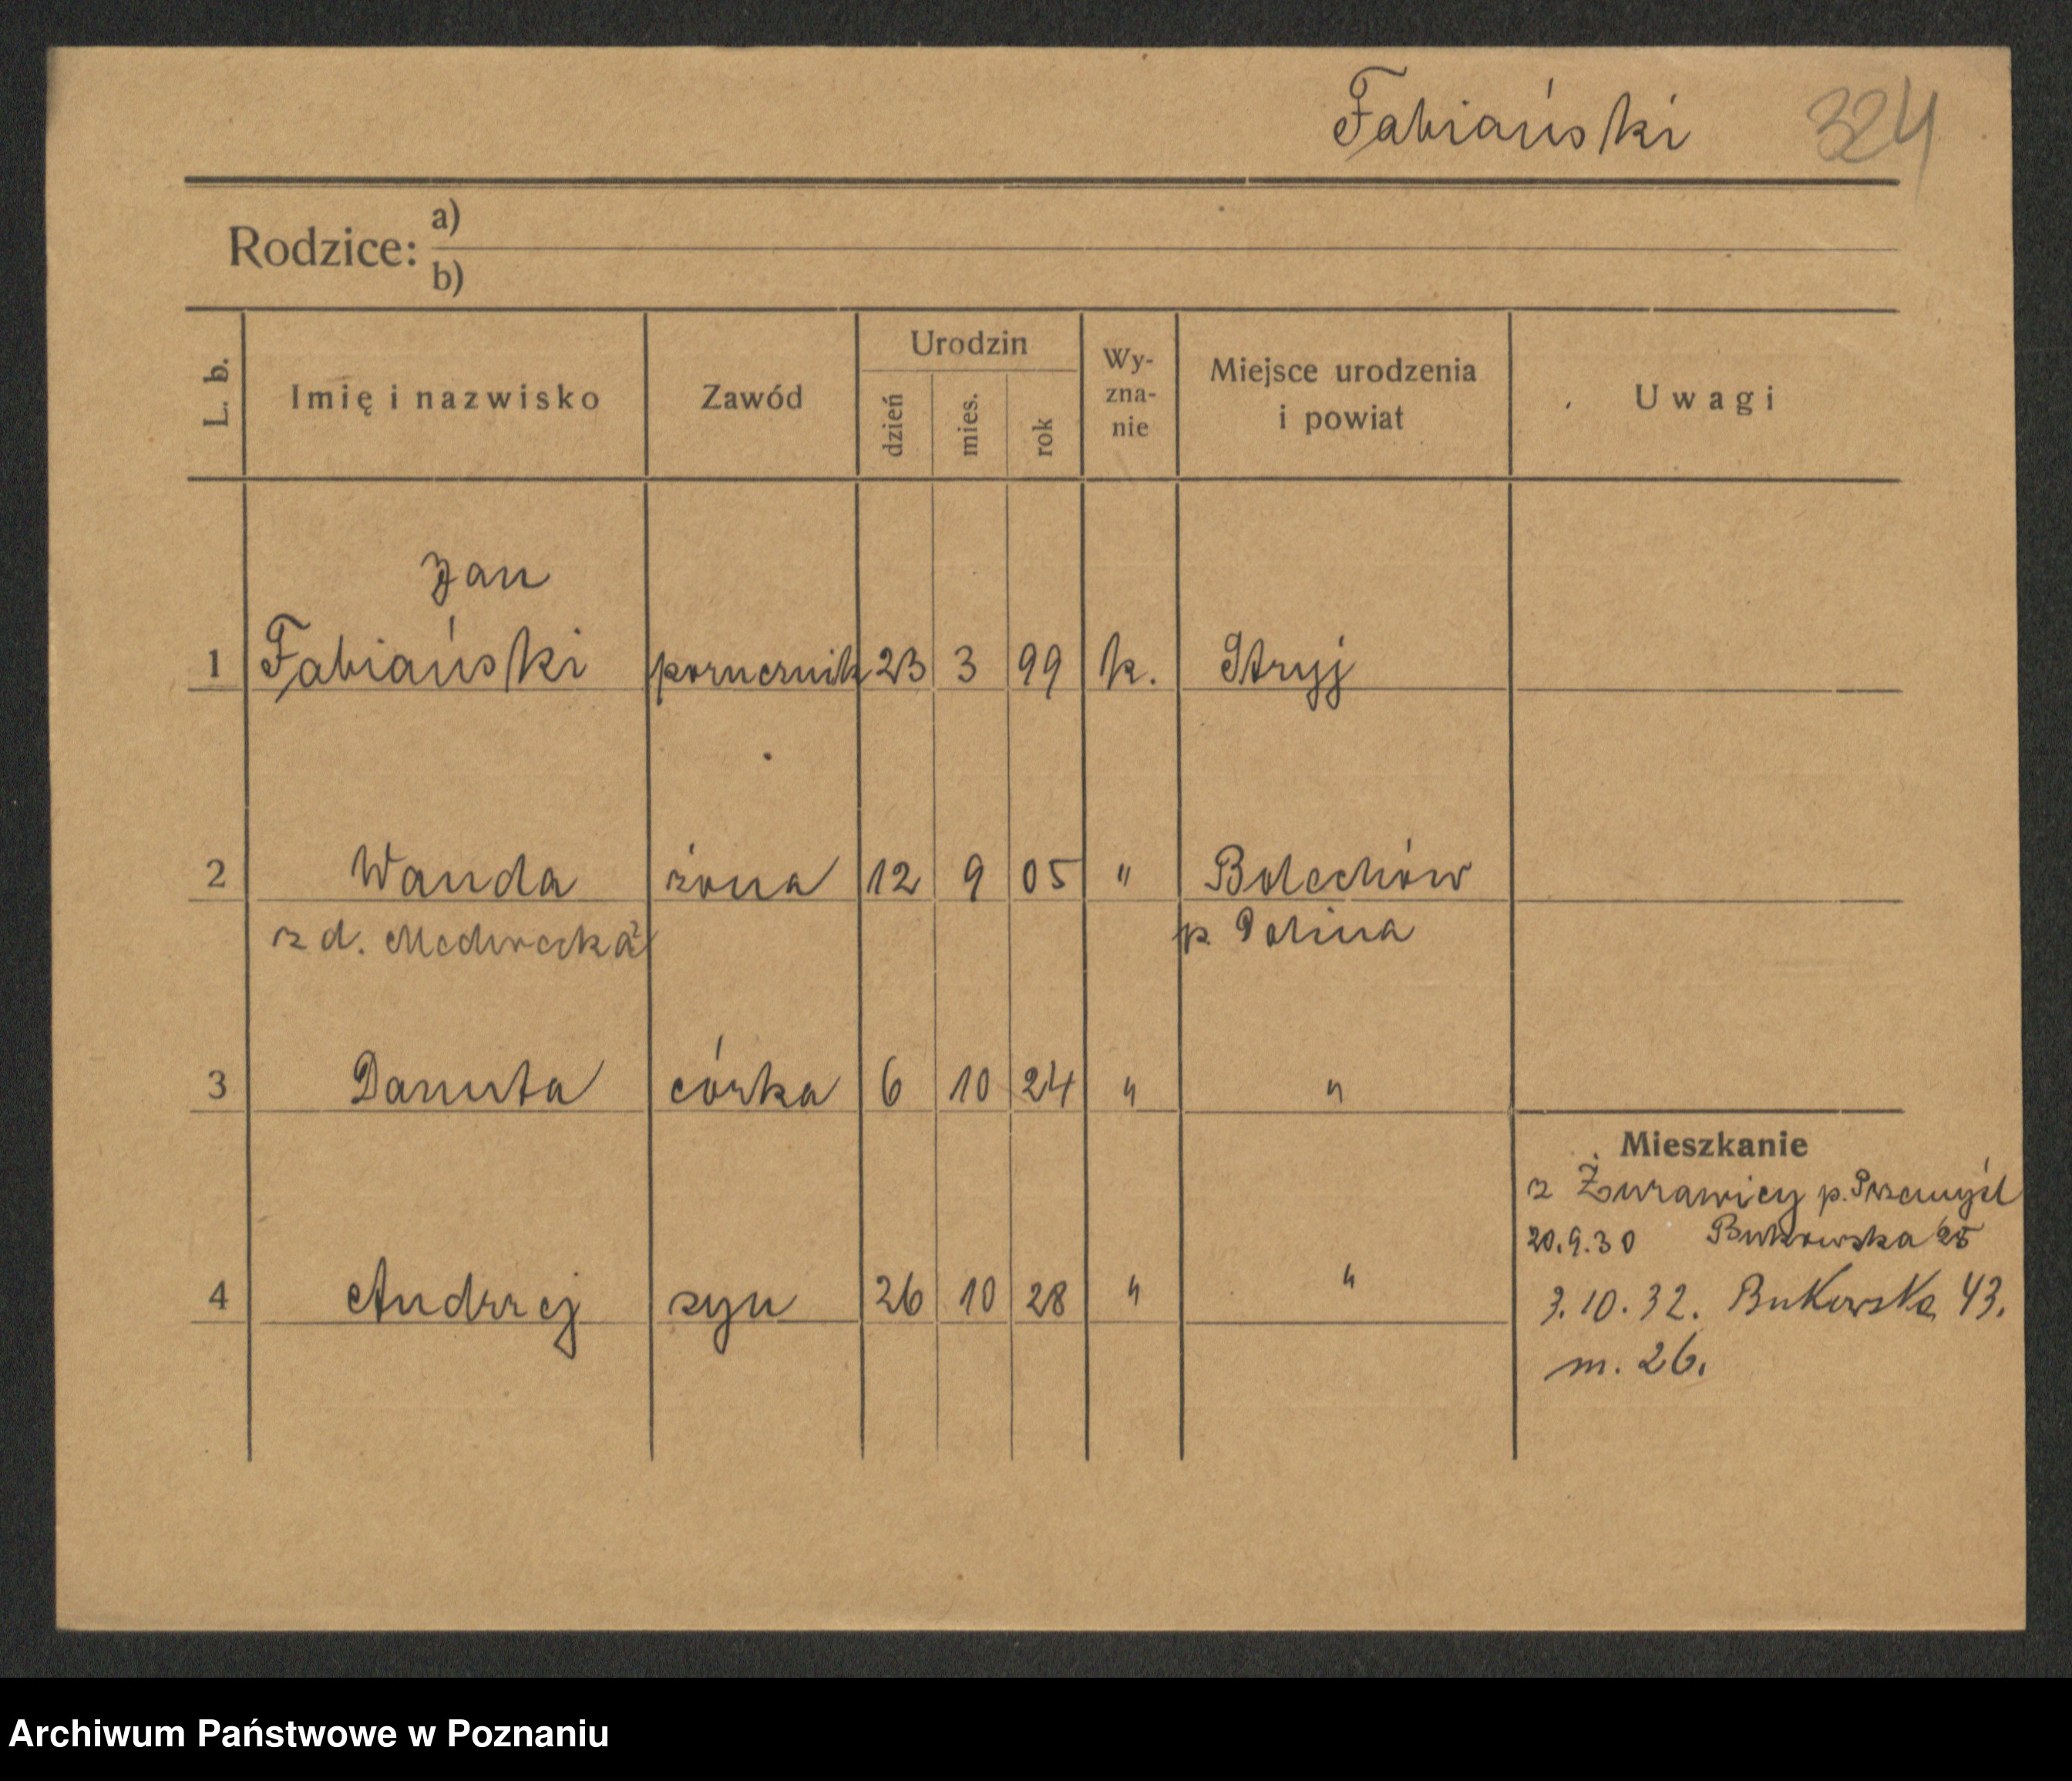 Fabiański 324
Rodzice: a)
b)
L. b. Imię i nazwisko Zawód Urodzin dzień mies. rok Wy-zna-nie Miejsce urodzenia i powiat Uwagi
Jan
1 Fabiański porucznik 23 3 99 k. Stryj
2 Wanda żona 12 9 05 " Bolechów
z d. p. Dolina
3 Danuta córka 6 10 24 " "
Mieszkanie
z Żurawicy p. Przemyśl
20.9.30 Bukowska 25
4 Andrzej syn 26 10 28 " "
3.10.32. Bukowska 43.
m. 26.
Archiwum Państwowe w Poznaniu